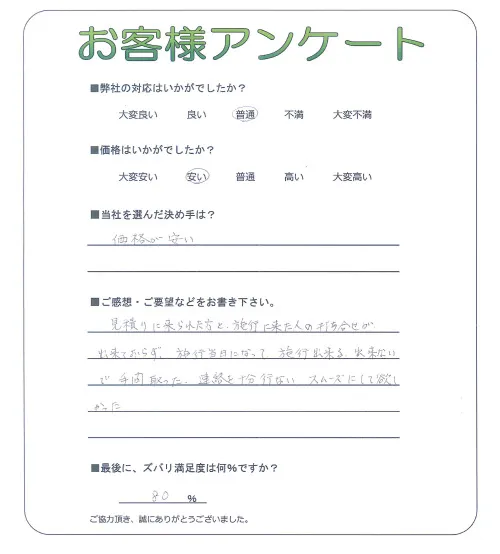 お客様アンケート
■弊社の対応はいかがでしたか？
大変良い 良い 普通 不満 大変不満
■価格はいかがでしたか？
大変安い 安い 普通 高い 大変高い
■当社を選んだ決め手は？
価格が安い
■ご感想・ご要望などをお書き下さい。
見積りに来られた方と、施行に来た人の打ち合せが
出来ておらず、施行当日になって、施行出来る、出来ない
で手間取った、連絡を十分行ない スムーズにして欲し
かった
■最後に、ズバリ満足度は何％ですか？
80 ％
ご協力頂き、誠にありがとうございました。